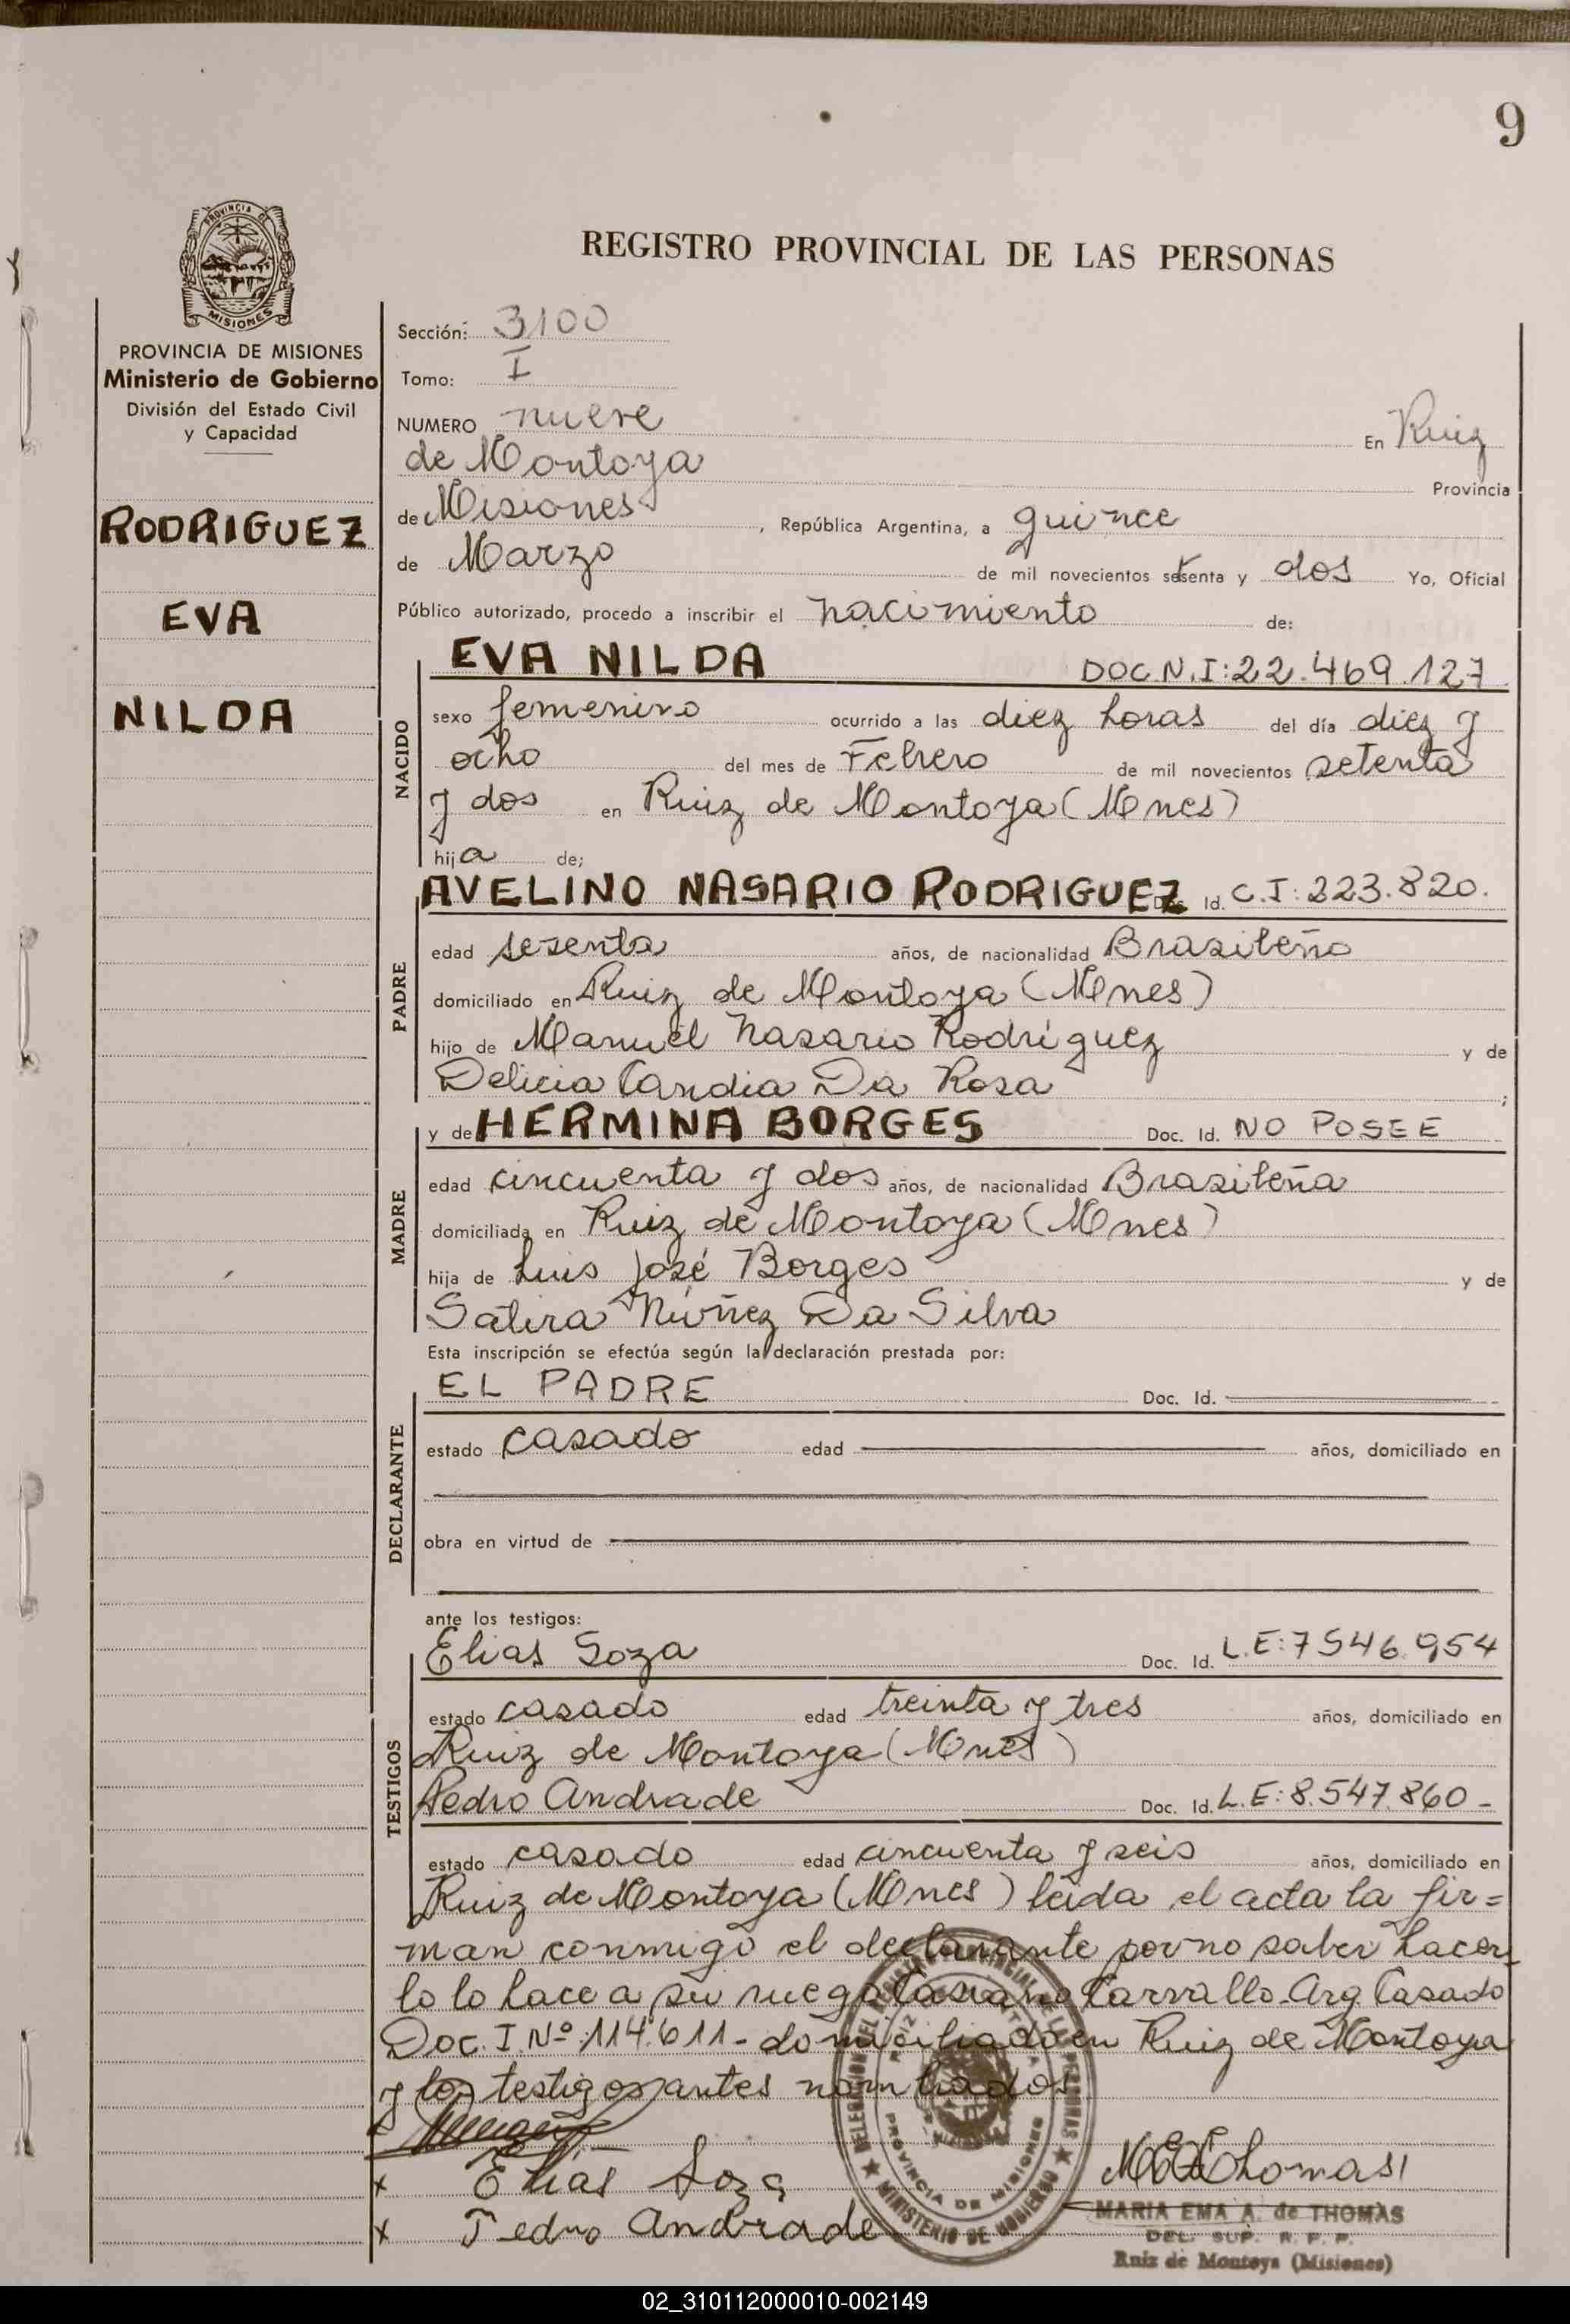 9
REGISTRO PROVINCIAL DE LAS PERSONAS
PROVINCIA DE
MISIONES
PROVINCIA DE MISIONES
Ministerio de Gobierno
División del Estado Civil
y Capacidad
RODRIGUEZ
EVA
NILDA
Sección: 3100
Tomo: I
NUMERO nueve En Ruiz
de Montoya Provincia
de Misiones, República Argentina, a quince
de Marzo de mil novecientos setenta y dos Yo, Oficial
Público autorizado, procedo a inscribir el nacimiento de:
NACIDO
EVA NILDA DOC.N.I:22.469.127
sexo femenino ocurrido a las diez horas del día diez y
ocho del mes de Febrero de mil novecientos setenta
y dos en Ruiz de Montoya (Mnes)
hija de;
PADRE
AVELINO NASARIO RODRIGUEZ Doc. Id. C.I: 223.820.
edad sesenta años, de nacionalidad Brasileño
domiciliado en Ruiz de Montoya (Mnes)
hijo de Manuel Nasario Rodríguez y de
Delicia Candia Da Rosa ;
MADRE
y de HERMINA BORGES Doc. Id. NO POSEE
edad cincuenta y dos años, de nacionalidad Brasileña
domiciliada en Ruiz de Montoya (Mnes)
hija de Luis José Borges y de
Satira Núñez Da Silva
Esta inscripción se efectúa según la declaración prestada por:
DECLARANTE
EL PADRE Doc. Id.
estado casado edad años, domiciliado en
obra en virtud de
ante los testigos:
TESTIGOS
Elias Soza Doc. Id. L.E:7546.954
estado casado edad treinta y tres años, domiciliado en
Ruiz de Montoya (Mnes)
Pedro Andrade Doc. Id. L.E:8.547.860-
estado casado edad cincuenta y seis años, domiciliado en
Ruiz de Montoya (Mnes) leída el acta la fir=
man conmigo el declarante por no saber hacer
lo lo hace a su ruego Casiano Carvallo. Arg. Casado
Doc. I. Nº 114.611- domiciliado en Ruiz de Montoya
y los testigos antes nombrados
x Elias Soza
x Pedro Andrade
DELEGACION DEL REGISTRO PROVINCIAL DE LAS PERSONAS
RUIZ DE MONTOYA
PROVINCIA DE MISIONES
★ MINISTERIO DE GOBIERNO ★
MARIA EMA A. de THOMAS
DEL. SUP. R. P. P.
Ruiz de Montoya (Misiones)
02_310112000010-002149